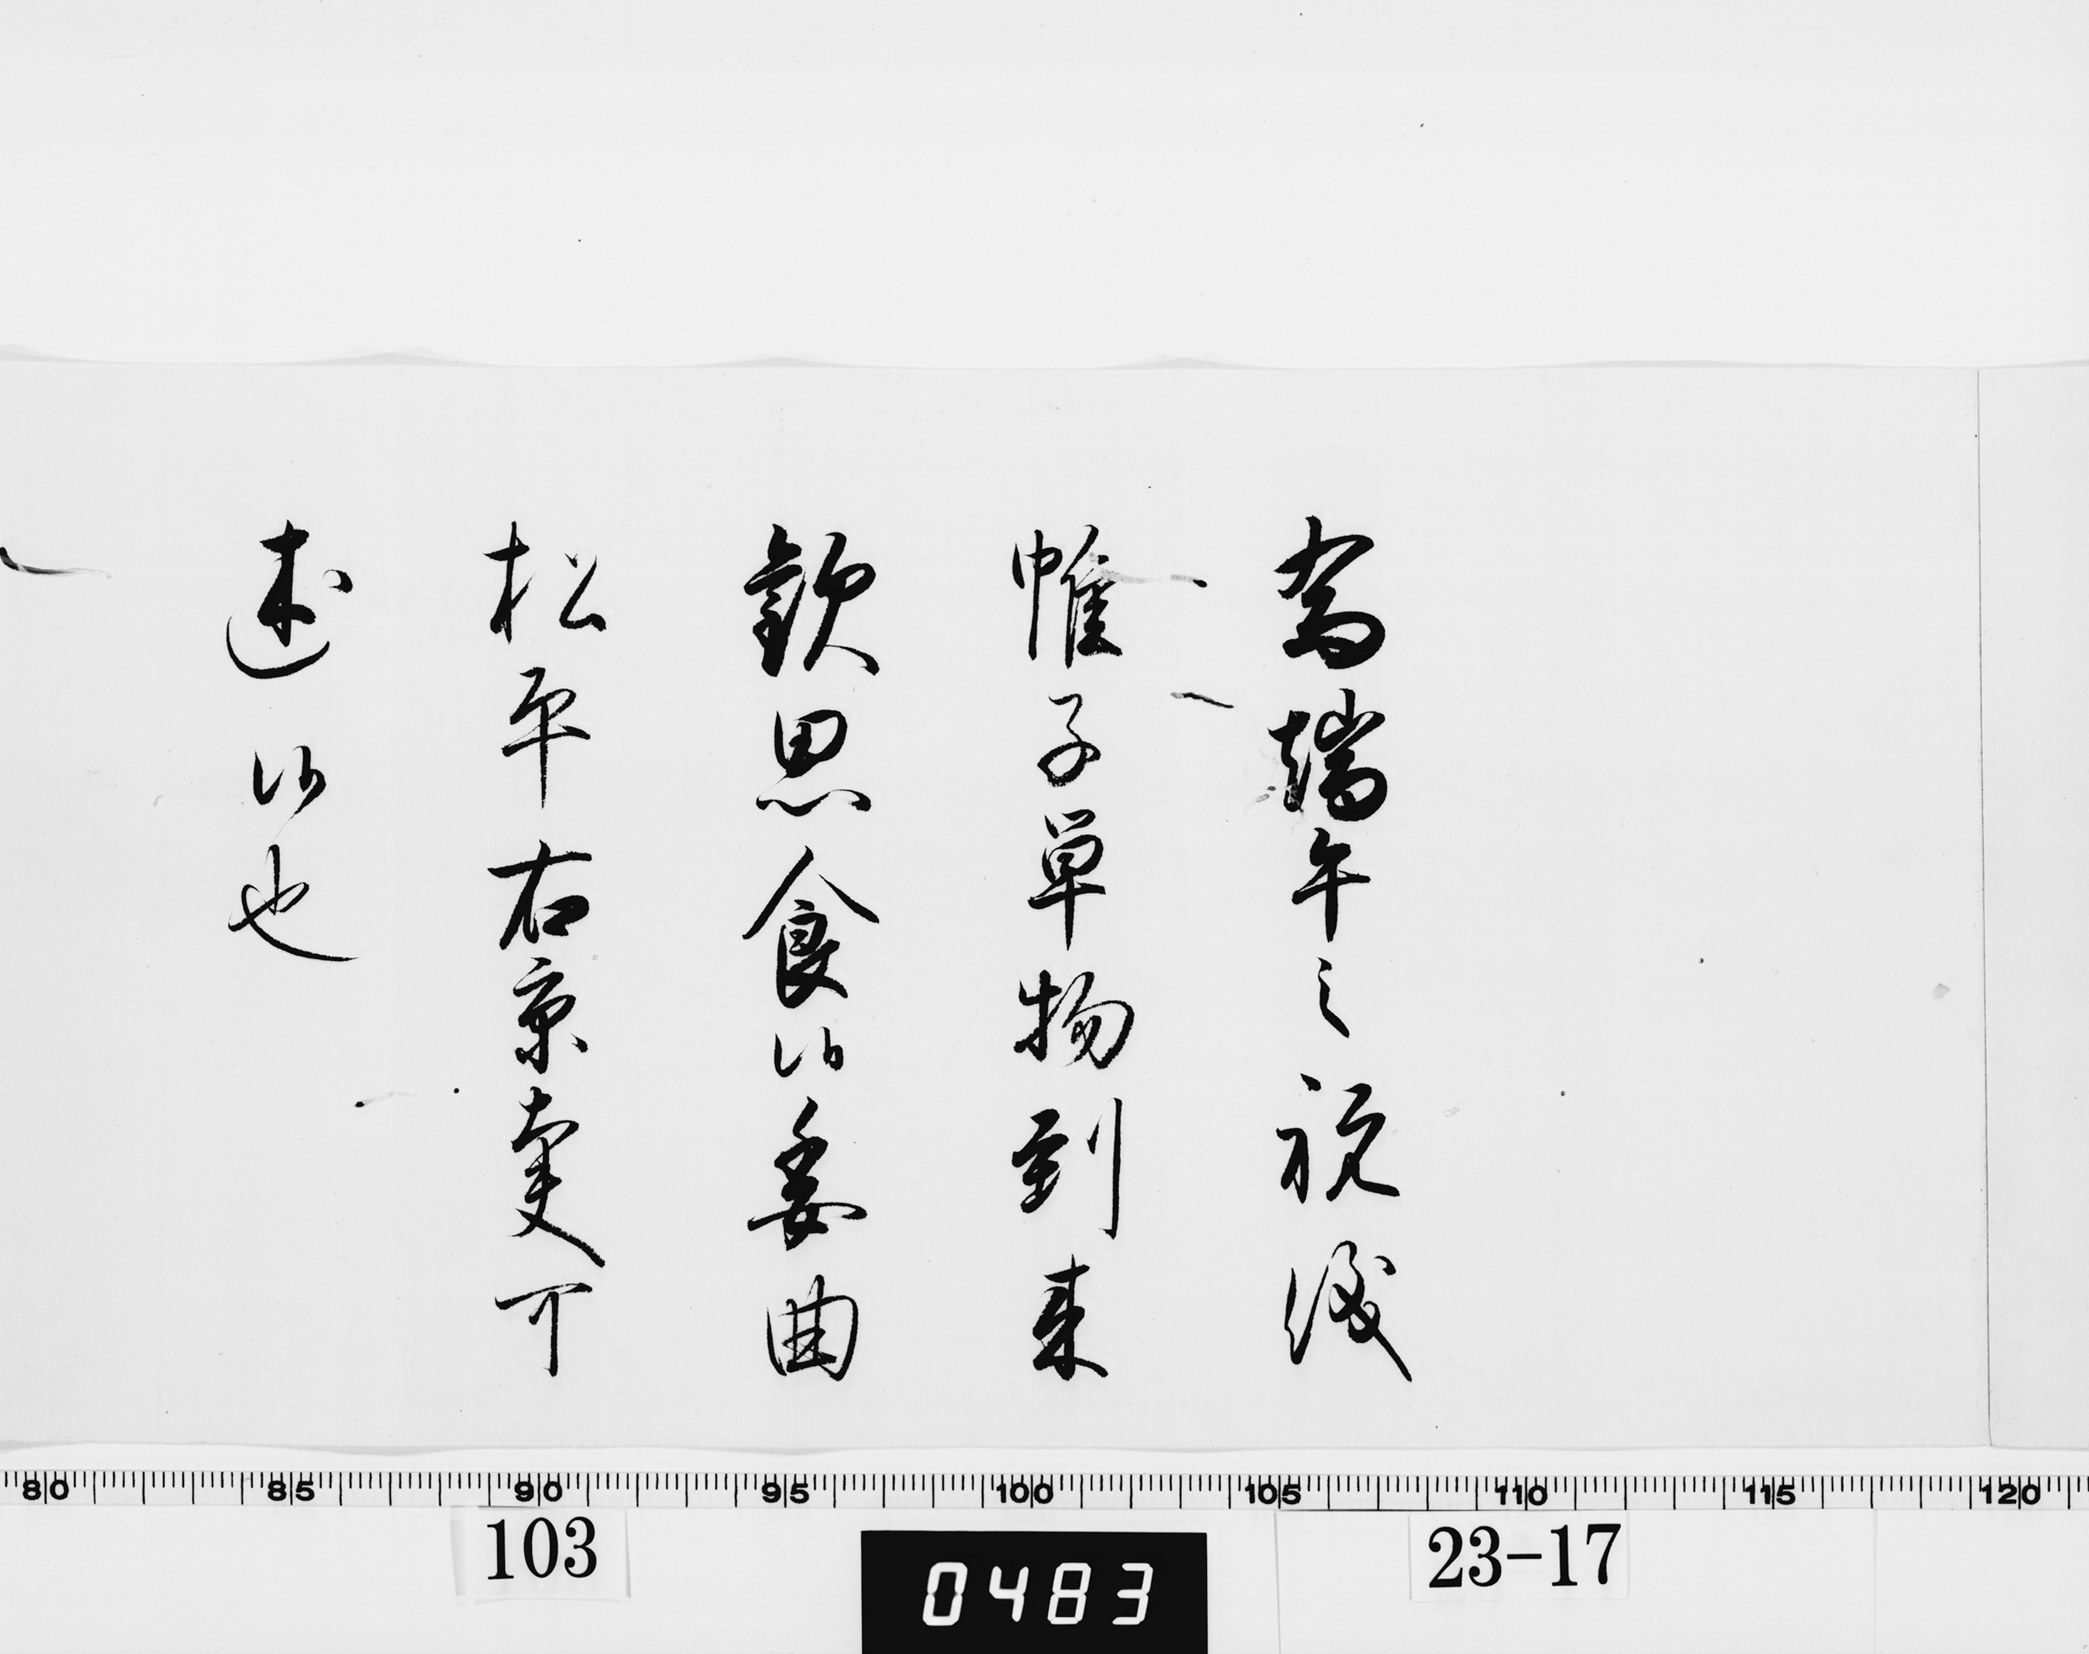 為端午之祝儀
帷子単物到来
歓思食候委曲
松平右京大夫可
述候也
80 85 90 95 100 105 110 115 120
103
0483
23-17